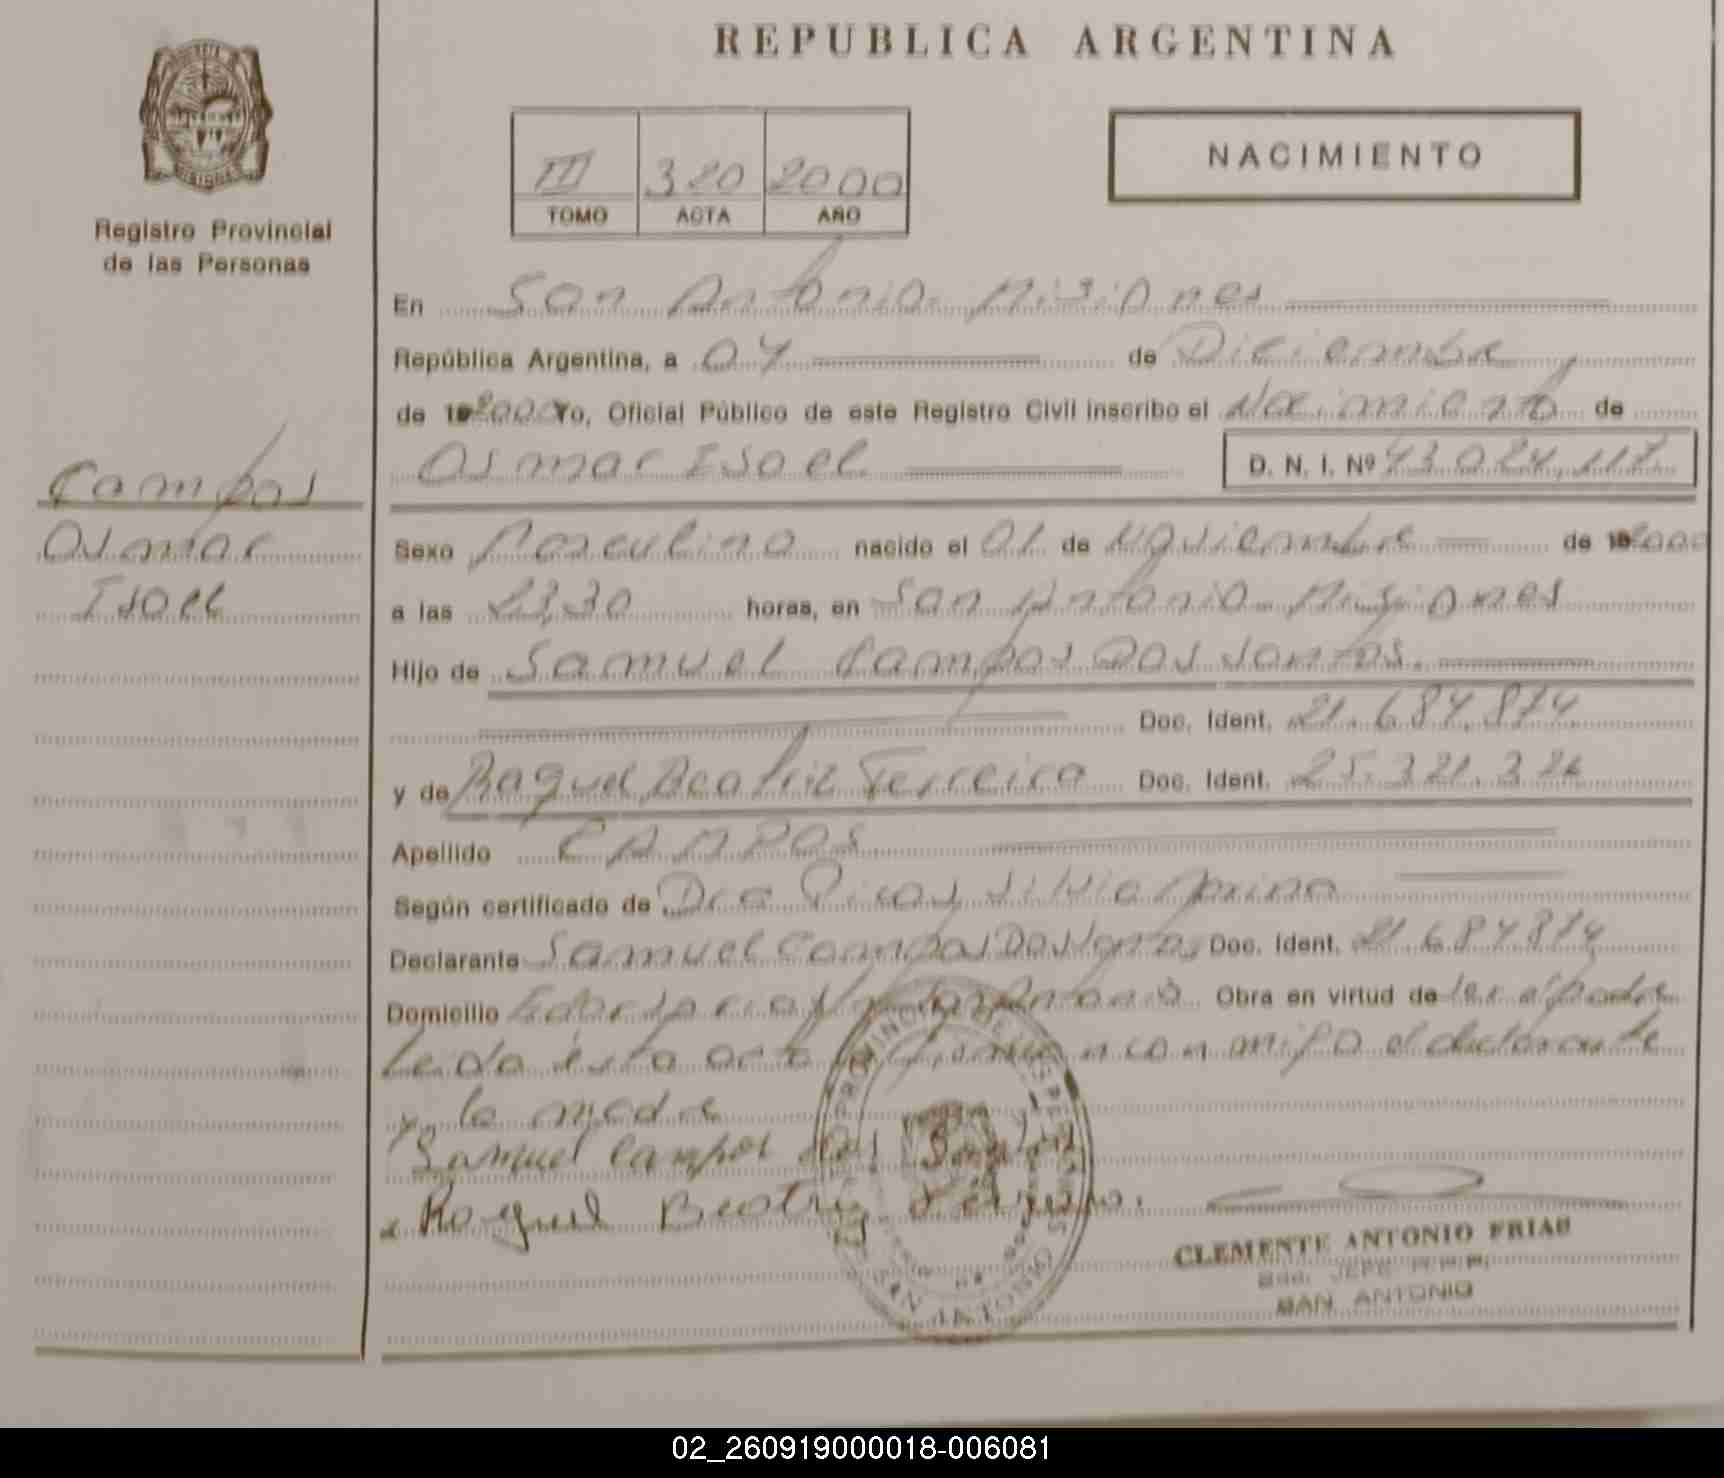 REPUBLICA ARGENTINA
NACIMIENTO
III 320 2000
TOMO ACTA AÑO
Registro Provincial
de las Personas
Campos
Osmar
Isael
En San Antonio Misiones
República Argentina, a 04 de Diciembre
de 19 2000 Yo, Oficial Público de este Registro Civil inscribo el Nacimiento de
Osmar Isael D. N. I. Nº 43.024.117
Sexo Masculino nacido el 01 de Noviembre de 19 2000
a las 23,30 horas, en San Antonio Misiones
Hijo de Samuel Campos Dos Santos.
Doc. Ident. 21.684.874
y de Raquel Beatriz Ferreira Doc. Ident. 25.321.326
Apellido CAMPOS
Según certificado de Dra Silvia
Declarante Samuel Campos Dos Santos Doc. Ident. 21.684.874
Domicilio San Antonio Obra en virtud de ser el padre
Leída ésta acta la firman conmigo el declarante
y la madre
Samuel Campos dos Santos
Raquel Beatriz Ferreira.
PROVINCIA DE MISIONES
SAN ANTONIO
CLEMENTE ANTONIO FRIAS
JEFE R.P.P.
SAN ANTONIO
02_260919000018-006081